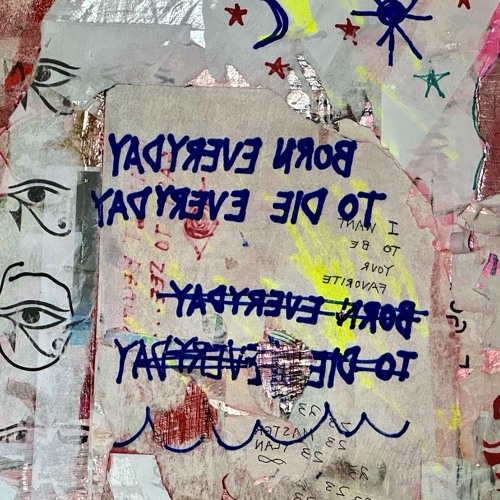 BORN EVERYDAY
TO DIE EVERYDAY
I WANT
TO BE
YOUR
FAVORITE
BORN EVERYDAY
TO DIE EVERYDAY
33
MASTER
PLAN
∞
23
23
33